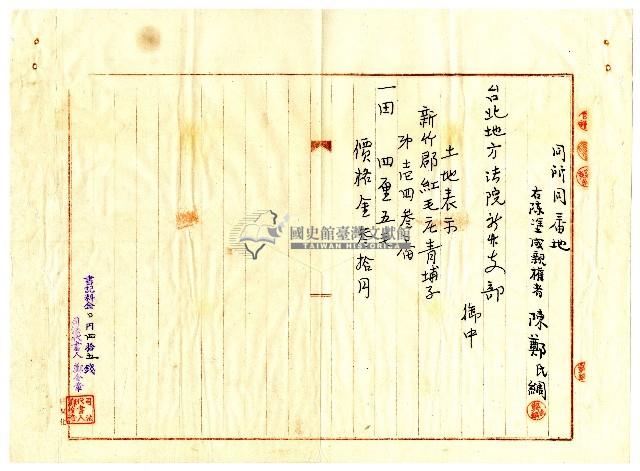 同所同番地
右陳塗成親權者 陳鄭氏綢
台北地方法院新竹支部
御中
土地表示
新竹郡紅毛庄青埔子
四叁番
一田 四厘五毛
價格金叁拾円
國史館臺灣文獻館
TAIWAN HISTORICA
書記料金〇円四拾五錢
司法代書人 鄭金章
司法代書人